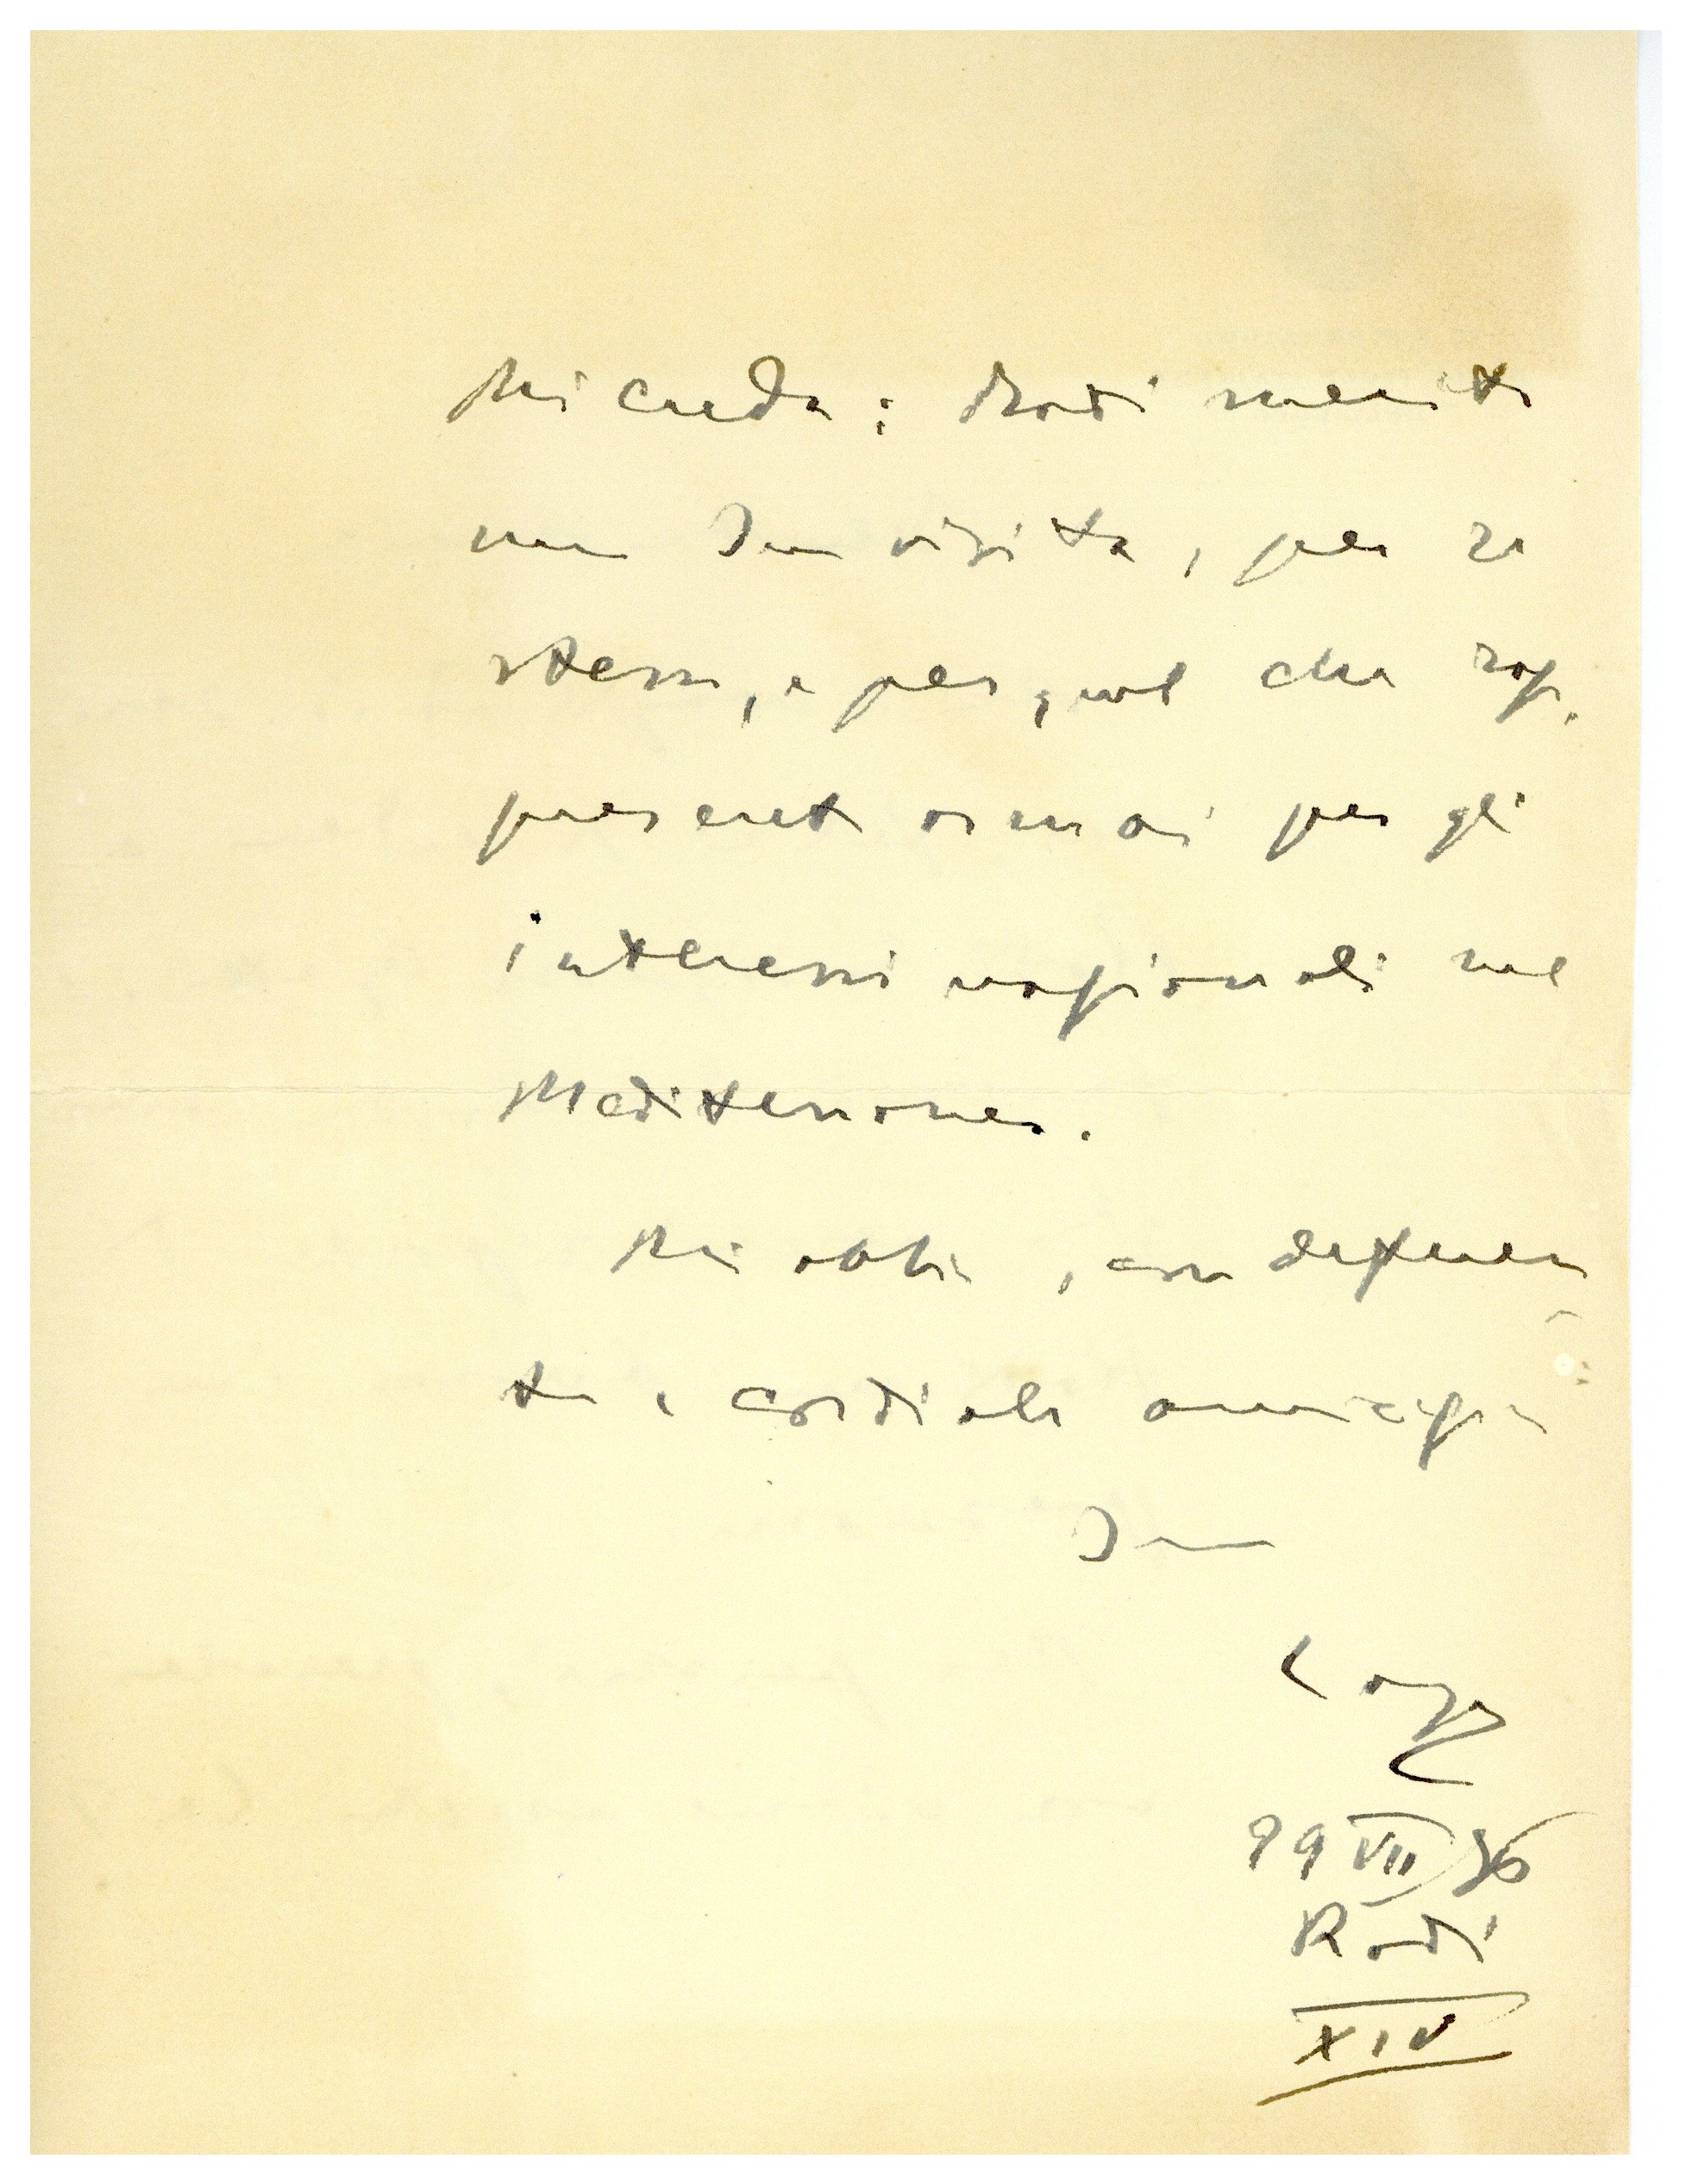 Mi creda: Rodi merita
una Sua visita, per se
stessa, e per quel che rap-
presenta ormai per gli
interessi nazionali nel
Mediterraneo.
Mi abbia, con deferen-
te e cordiale amicizia
Suo
Lago
29 VII 36
Rodi
XIV